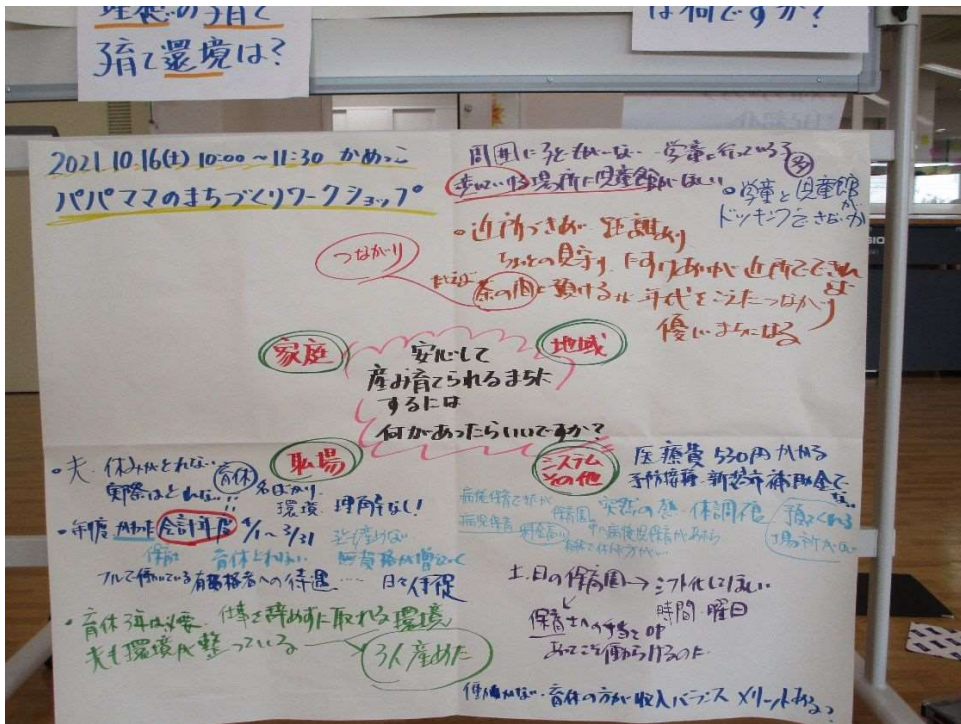 理想の子育て
子育て環境は?
は何ですか?
2021.10.16(土) 10:00〜11:30 かめっこ
パパママのまちづくりワークショップ
周囲に子どもがいない 学童に行っている子 多
歩いていける場所に児童館がほしい
・学童と児童館が
ドッキングできないか
・近所づきあい 距離あり
ちょっとの見守り、たすけあいが近所でできれば
つながり
たとえば 茶の間に預ける 年代をこえたつながり
優しいまちになる
家庭
地域
安心して
産み育てられるまちに
するには
何があったらいいですか?
職場
システム
その他
・夫 休みがとれない 育休
実際はとれない!! 名ばかり
環境 理解なし!
・年度 会計年度 4/1〜3/31
育休とれない
フルで働いている有資格者への待遇…
・育休3年は必要 仕事を辞めずに取れる環境
夫も環境が整っている → 3人産めた
医療費 530円かかる
予防接種 新潟市補助金で
病児保育 料金高い 保育園 突然の熱 体調不良
預けてくれる
場所がない
土、日の保育園→シフト化してほしい
時間 曜日
保育士への手当てUP
あってこそ働けるのに
育休の方が収入バランス メリットある?